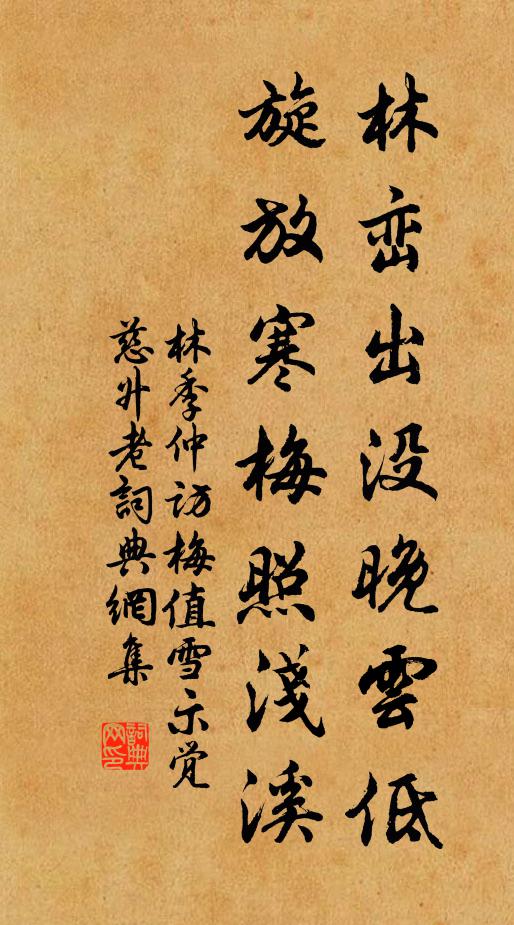 林峦出没晚雲低
旋放寒梅照淺溪
林季仲访梅值雪示觉
慈升老詞典網集
詞典
网印